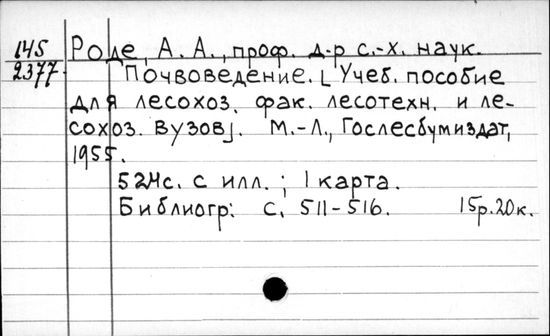 145
2377
Роде, А. А., проф. д-р с.-х. наук.
Почвоведение. [Учеб. пособие
для лесохоз. фак. лесотехн. и ле-
сохоз. вузов]. М.-Л., Гослесбумиздат,
1955.
524с. с илл.; 1 карта.
Библиогр: с. 511-516. 15р.20к.